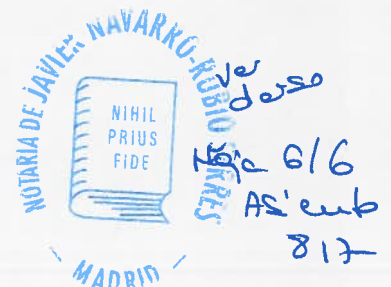 NOTARIA DE JAVIER NAVARRO-RUBIO
NIHIL
PRIUS
FIDE
MADRID
Ver
dorso
Hoja 6/6
Asiento
817